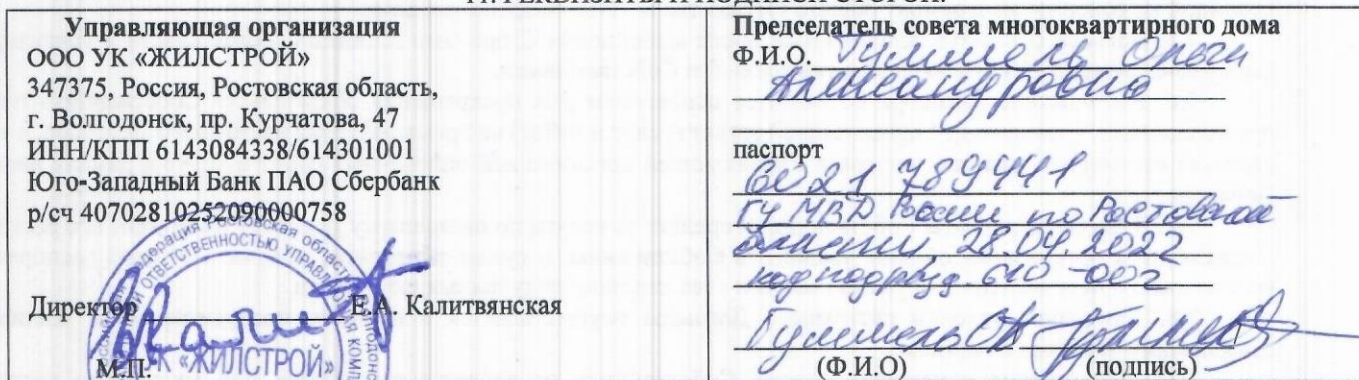 Управляющая организация
ООО УК «ЖИЛСТРОЙ»
347375, Россия, Ростовская область,
г. Волгодонск, пр. Курчатова, 47
ИНН/КПП 6143084338/614301001
Юго-Западный Банк ПАО Сбербанк
р/сч 40702810252090000758
Директор Е.А. Калитвянская
М.П.
«ЖИЛСТРОЙ»
Председатель совета многоквартирного дома
Ф.И.О. Ольга
Александровна
паспорт
6021 789441
ГУ МВД России по Ростовской
области 28.04.2022
код подразд 610-002
(Ф.И.О) (подпись)